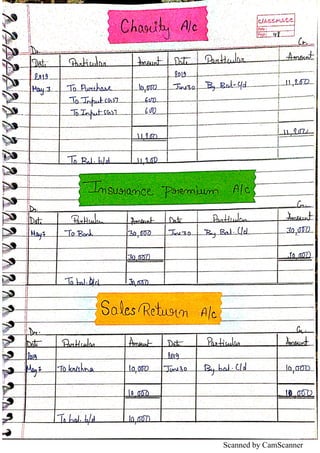 Charity A/c
classmate
Date
Page 48
Dr. Cr.
Date Particular Amount Date Particular Amount
2019 2019
May 7 To Purchase 10,000 June 30 By Bal- c/d 11,200
To Input CGST 600
To Input SGST 600
11,200 11,200
To Bal. b/d 11,200
Insurance Premium A/c
Dr. Cr.
Date Particular Amount Date Particular Amount
May 7 To Bank 30,000 June 30 By Bal. C/d 30,000
30,000 30,000
To bal. b/d 30,000
Sales Return A/c
Dr. Cr.
Date Particular Amount Date Particular Amount
2019 2019
May 7 To krishna 10,000 June 30 By bal. C/d 10,000
10,000 10,000
To bal. b/d 10,000
Scanned by CamScanner